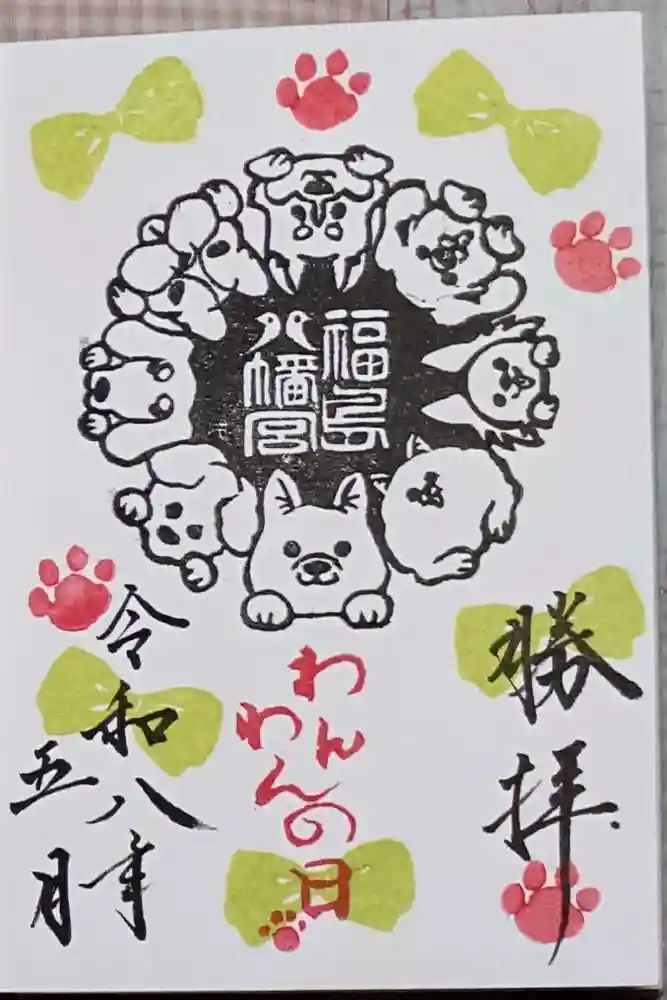 福島
八幡宮
勝拝
わん
わんの日
令和八年
五月